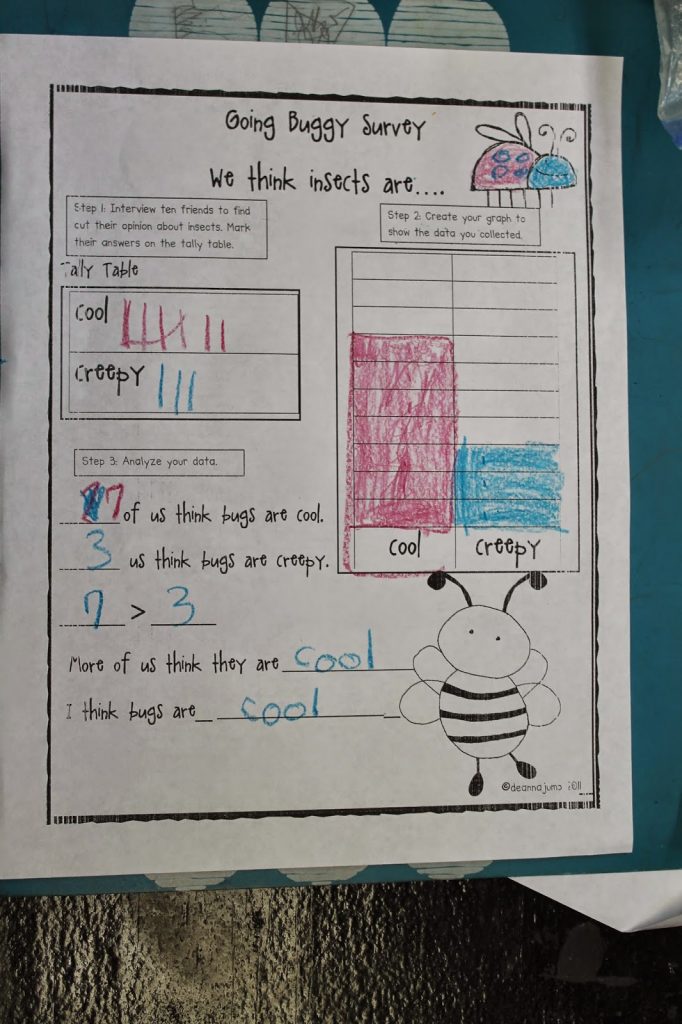 Going Buggy Survey
We think insects are....
Step 1: Interview ten friends to find
out their opinion about insects. Mark
their answers on the tally table.
Tally Table
cool
creepy
Step 2: Create your graph to
show the data you collected.
cool creepy
Step 3: Analyze your data.
7 of us think bugs are cool.
3 us think bugs are creepy.
7 > 3
More of us think they are cool
I think bugs are cool
©deannajump 2011